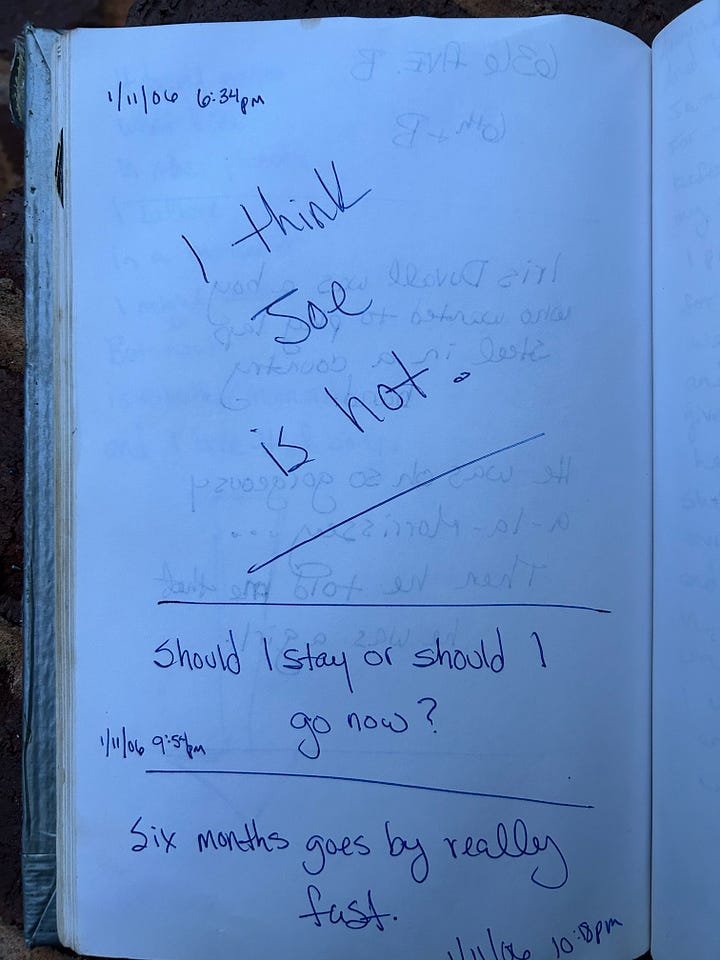 1/11/06 6:34pm
I think
Joe
is hot.
Should I stay or should I
go now?
1/11/06 9:54pm
Six months goes by really
fast.
1/11/06 10:18pm